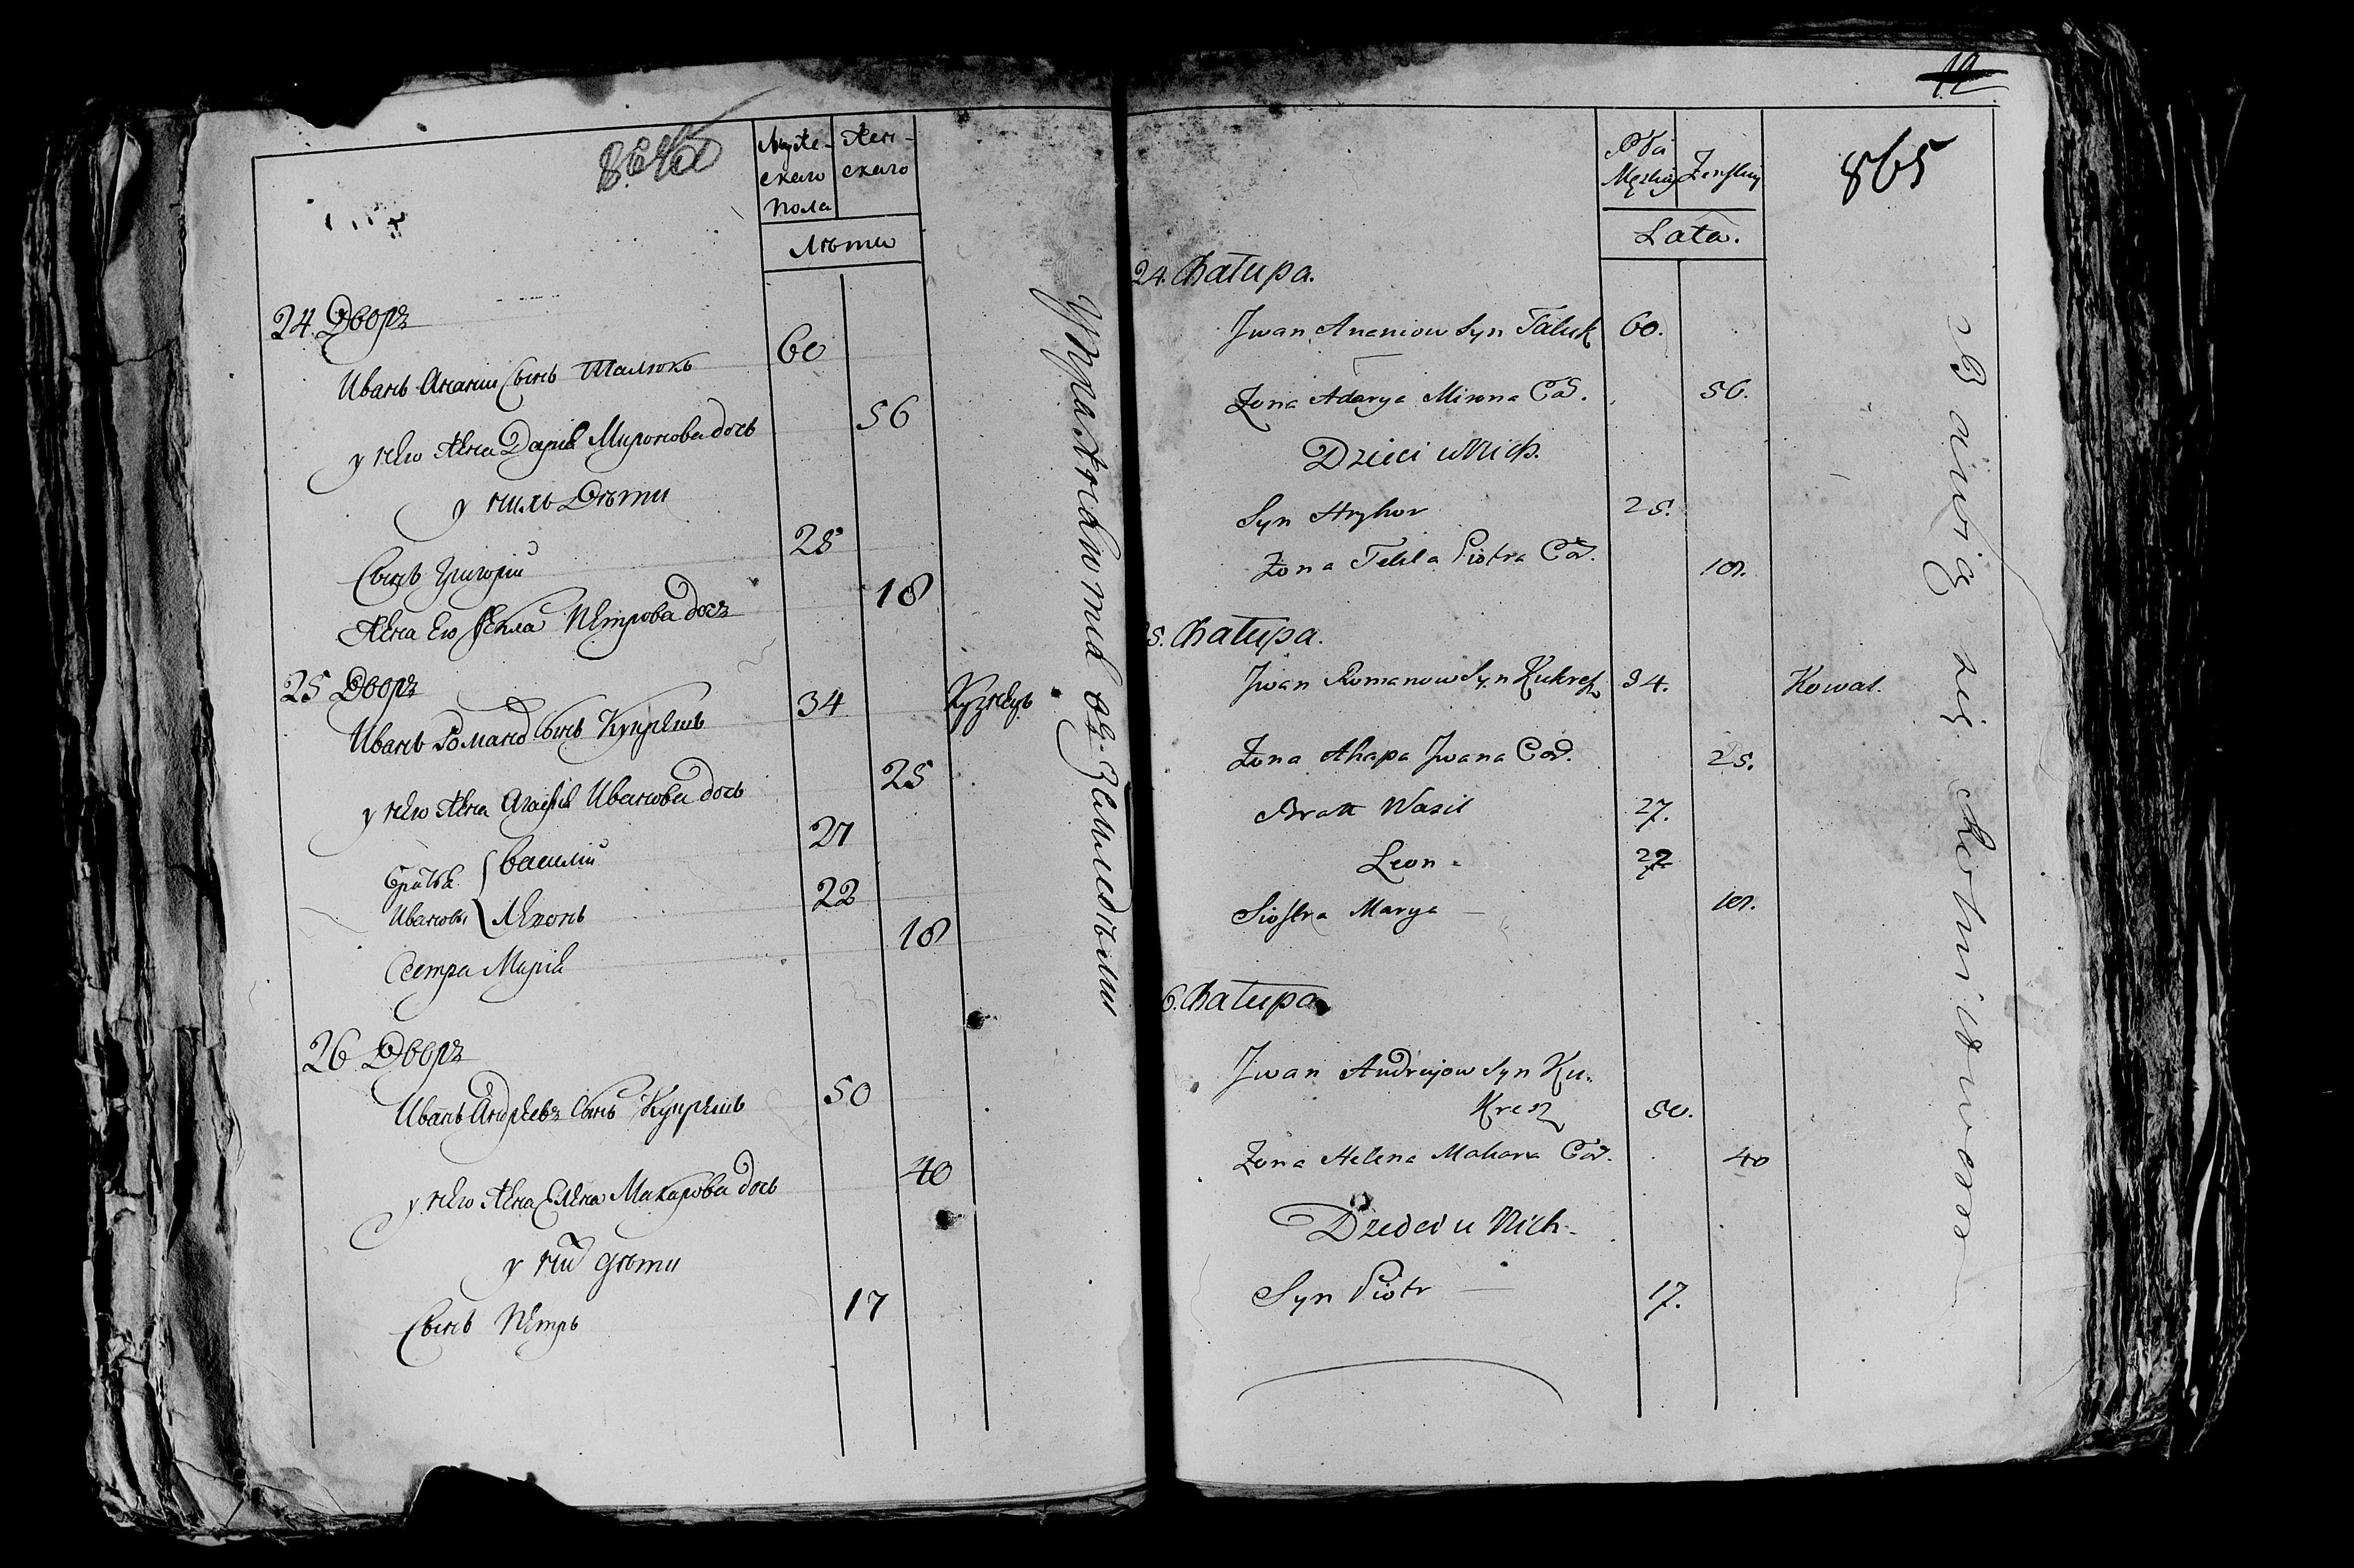 Муже-
скаго
пола
Жен-
скаго
Лѣта
24. Дворъ
Иванъ Ананіи Сынъ Талюкъ 60
у него жена Дарія Миронова дочь 56
у нихъ Дѣти
Сынъ Григорій 28
Жена Его Фекла Петрова дочь 18
25 Дворъ
Иванъ Романо Сынъ Купрешъ 34 Кузнецъ
у него жена Агафія Иванова дочь 25
Братья Ивановы
Василій 27
Леонъ 22
Сестра Марія 18
26 Дворъ
Иванъ Андреевъ Сынъ Купрешъ 50
у него жена Елена Макарова дочь 40
у них дѣти
Сынъ Петръ 17
Упражняются въ Земледѣлии
12
865
Płci
Męzkiey
Żenskiey
Lata.
24. Chałupa.
Jwan Ananiow Syn Taluk 60.
Zona Adarya Mirona Cod. 56.
Dzieci u Nich.
Syn Hryhor 28.
Zona Tekla Piotra Cod. 18.
5. Chałupa.
Jwan Romanow Syn Kukresz 34. Kowal.
Zona Ahapa Jwana Cod. 25.
Bratt Wasil 27.
Leon 22
Siostra Marya 18.
6. Chałupa
Jwan Andrejow Syn Ku-
kresz 50.
Zona Helena Makara Cod. 40
Dzieci u Nich.
Syn Piotr 17.
Bawią się Rolnictwem